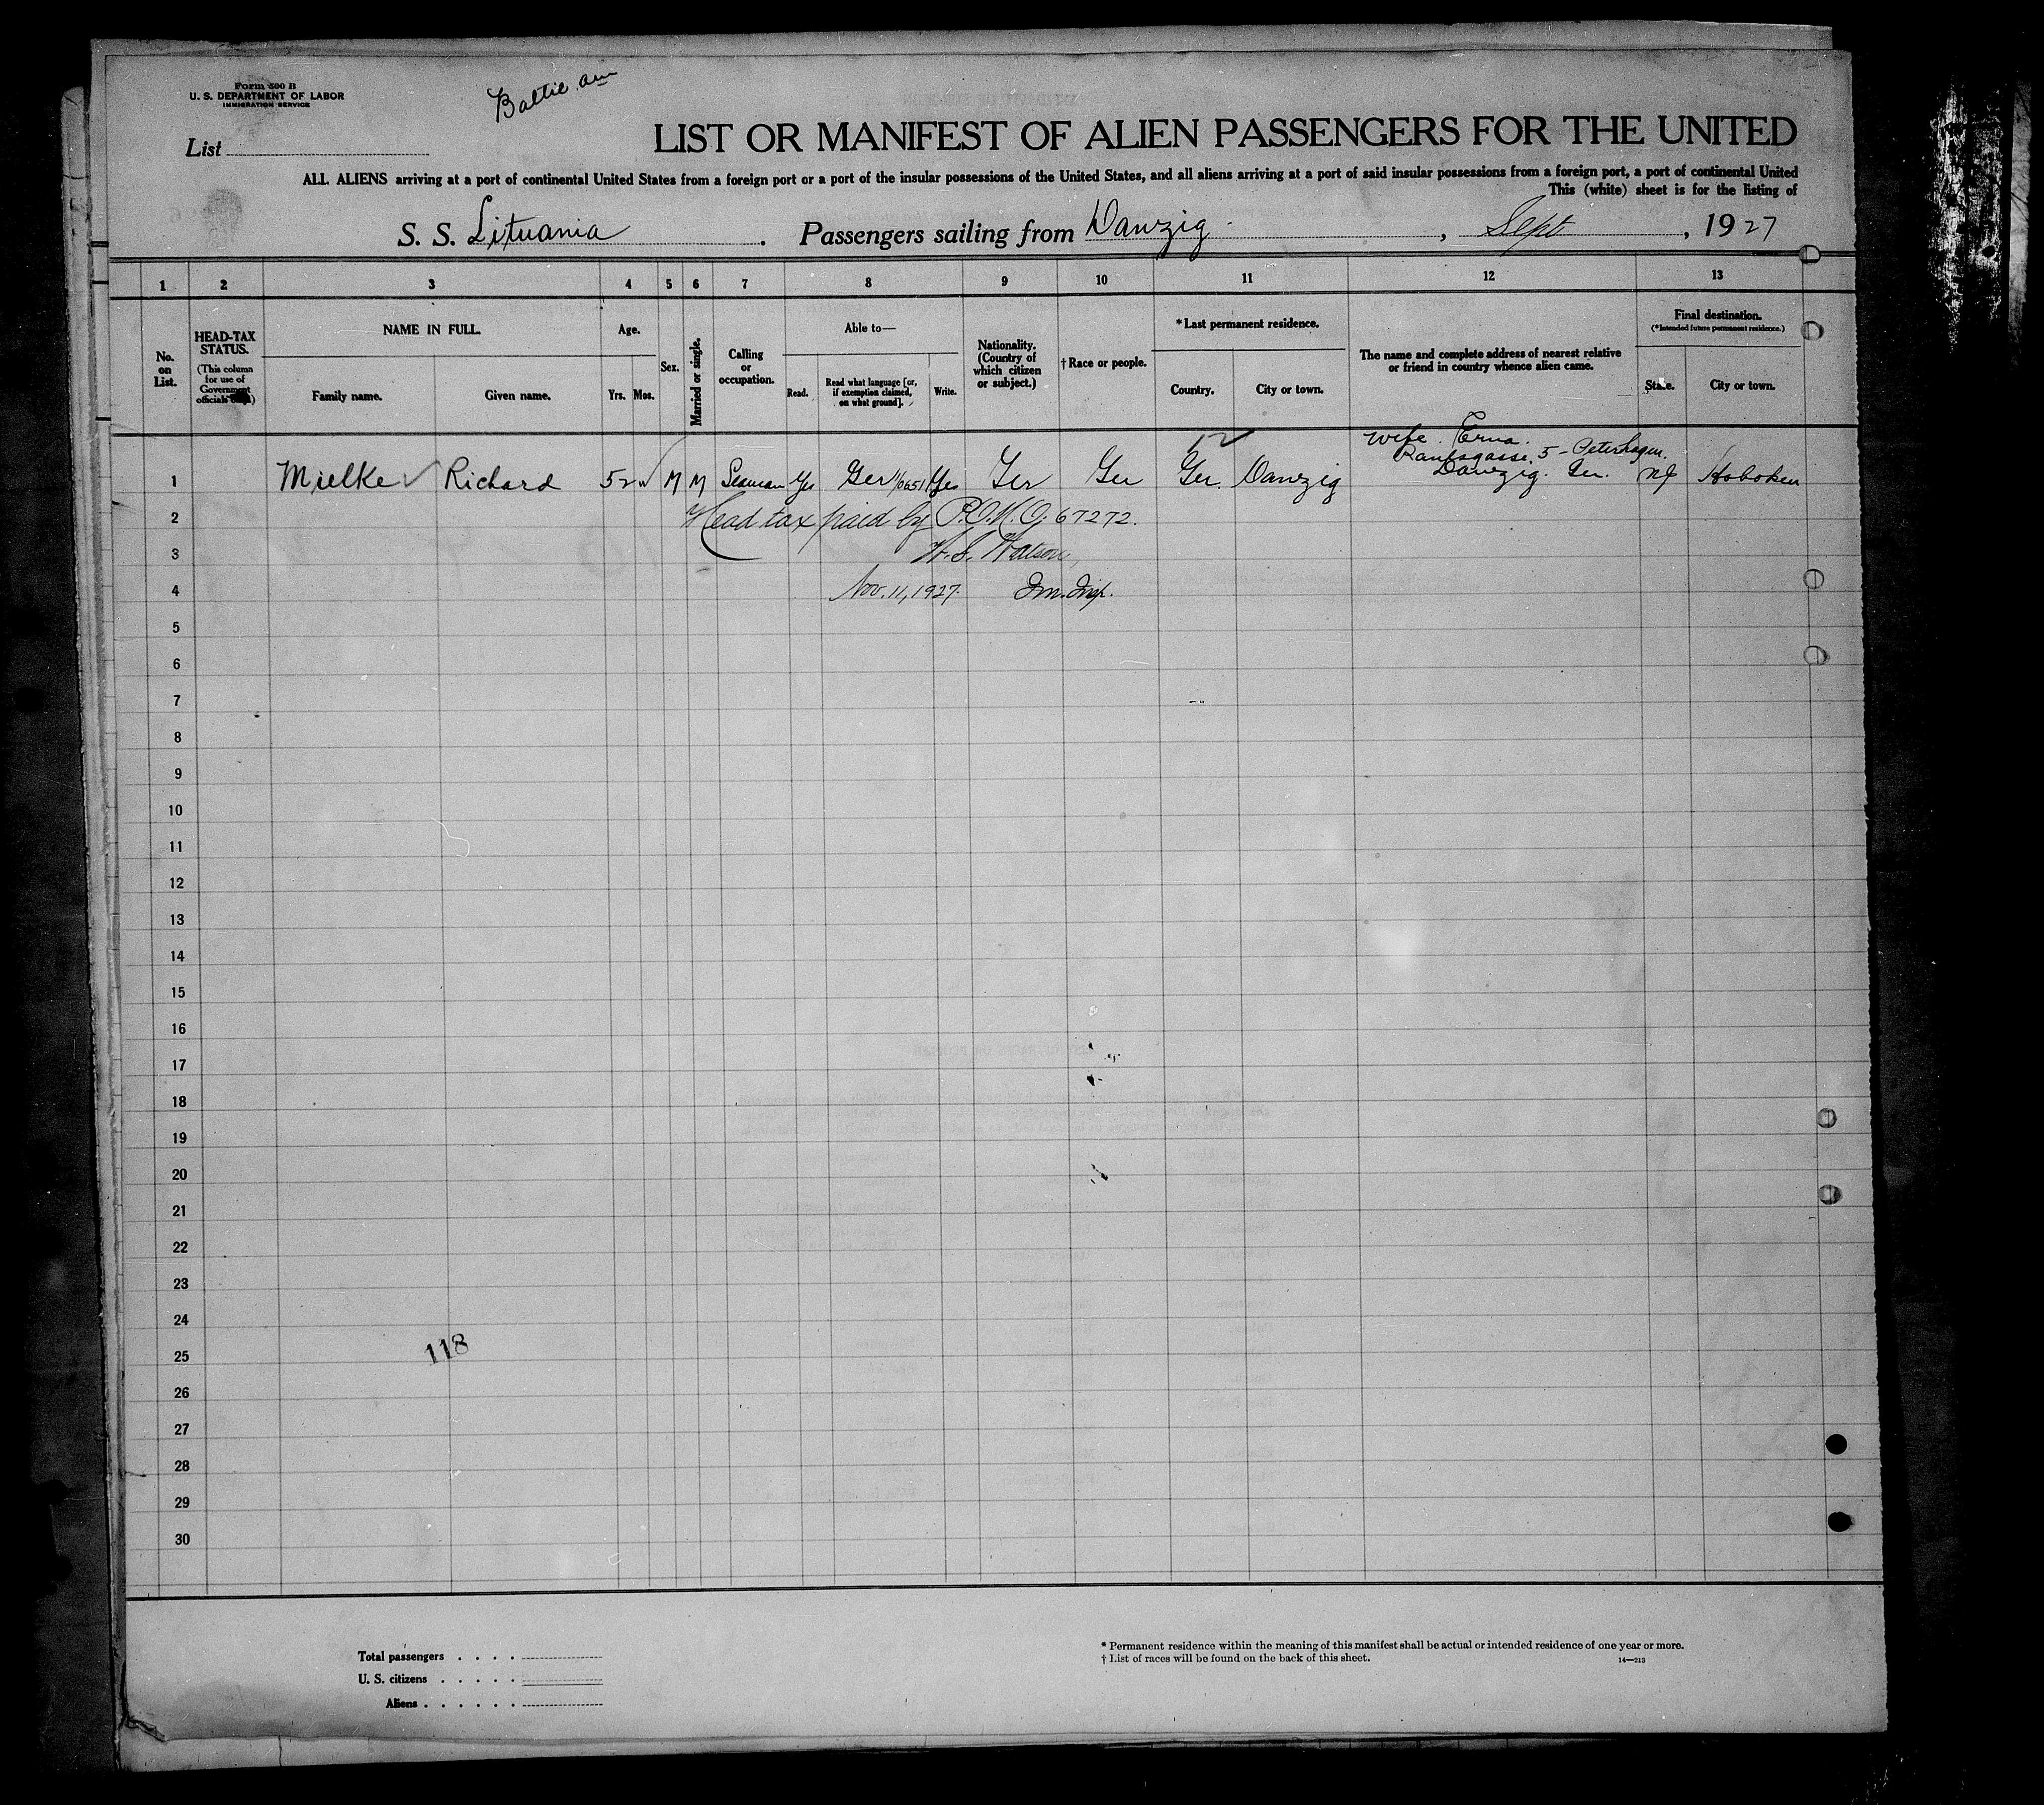 Form 500 B
U. S. DEPARTMENT OF LABOR
IMMIGRATION SERVICE
Baltic am
List
LIST OR MANIFEST OF ALIEN PASSENGERS FOR THE UNITED
ALL ALIENS arriving at a port of continental United States from a foreign port or a port of the insular possessions of the United States, and all aliens arriving at a port of said insular possessions from a foreign port, a port of continental United
This (white) sheet is for the listing of
S. S. Lituania . Passengers sailing from Danzig , Sept , 1927
1 2 3 4 5 6 7 8 9 10 11 12 13
No. on List.
HEAD-TAX STATUS.
(This column for use of Government officials only.)
NAME IN FULL.
Family name. Given name.
Age.
Yrs. Mos.
Sex.
Married or single.
Calling or occupation.
Able to—
Read. Read what language [or, if exemption claimed, on what ground]. Write.
Nationality. (Country of which citizen or subject.)
† Race or people.
* Last permanent residence.
Country. City or town.
The name and complete address of nearest relative or friend in country whence alien came.
Final destination.
(*Intended future permanent residence.)
State. City or town.
wife. Erna.
5 - Peterhagen.
1 Mielke Richard 52 M M Seaman Yes Ger Yes Ger Ger Ger. Danzig Danzig. Ger. NJ Hoboken
2 Head tax paid by P.O.M.O. 67272.
3 W. S. Watson,
4 Nov. 11, 1927. Im. Insp.
5
6
7
8
9
10
11
12
13
14
15
16
17
18
19
20
21
22
23
24
25
118
26
27
28
29
30
Total passengers . . . .
U. S. citizens . . . . .
Aliens . . . . . .
* Permanent residence within the meaning of this manifest shall be actual or intended residence of one year or more.
† List of races will be found on the back of this sheet.
14—213